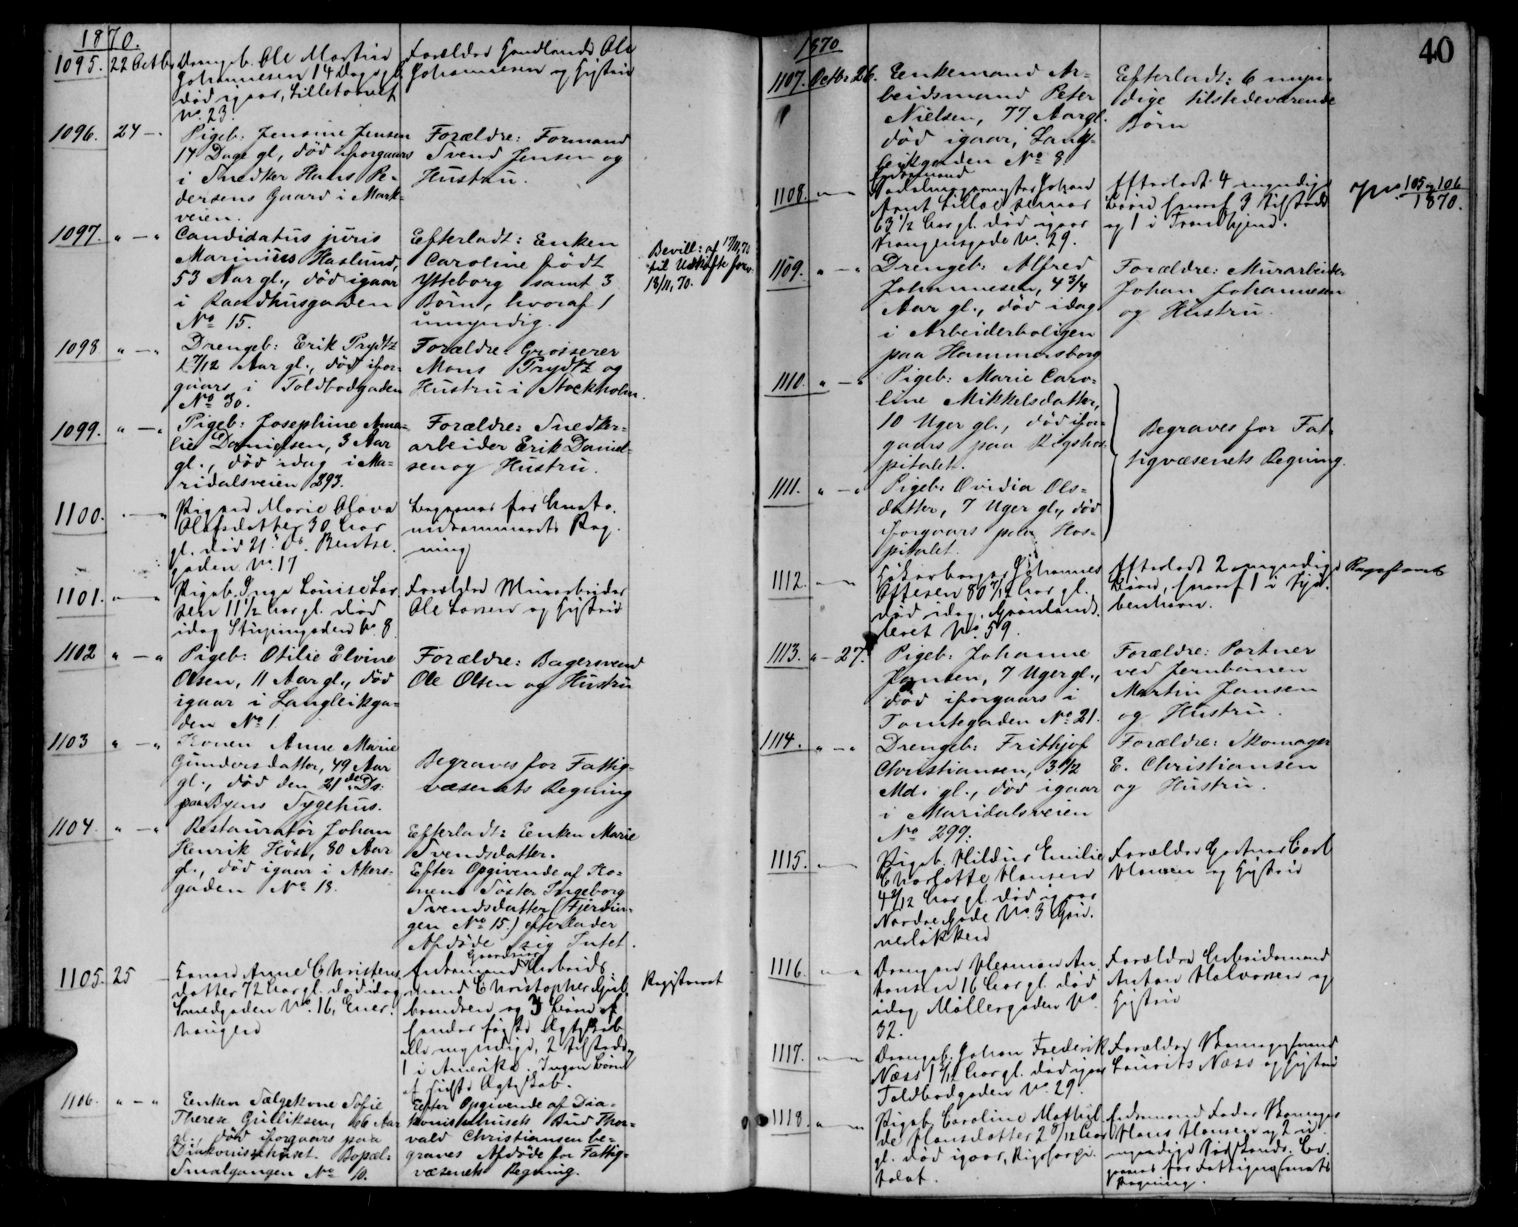 1870.
1095. 22 Octbr Drengeb. Ole Martin
Johannesen 14 Dage gl.
død igaar, Lilletorvet
No 23.
Forældre Ole
Johannesen og Hustru
1096. 24 — Pigeb: Jensine Jensen
14 Dage gl., død iforgaars
i Snedker Hans Pe-
dersens Gaard i Mark-
veien.
Forældre: Formand
Svend Jensen og
Hustru.
1097. " — " Candidatus juris
Marinius Haslund,
53 Aar gl., død igaar
i Raadhusgaden
No 15.
Efterladt: Enken
Caroline født
Ytteborg samt 3
Børn, hvoraf 1
umyndig.
Bevill: af 17/11,70
til Uskifte
18/11,70.
1098 " — " Drengeb: Erik Prydtz
1 7/12 Aar gl., død ifor-
gaars i Toldbodgaden
No 30.
Forældre: Grosserer
Mons Prydtz og
Hustru i Stockholm.
1099. " — " Pigeb: Josephine Ama-
lie Danielsen, 3 Aar
gl., død idag i Ma-
ridalsveien 293.
Forældre: Snedker-
arbeider Erik Daniel-
sen og Hustru.
1100. " — " Pigen Marie Olava
Olafsdatter 30 Aar
gl. død 21 ds. Bentse-
gaden No 17
Begraves for Amts-
Reg-
ning
1101. " — " Pigeb. Inga Louise Lar-
sen 11 1/2 Aar gl. død
idag No 8
Forældre Murarbeider
Ole Larsen og Hustru
1102 " — " Pigeb: Otilie Elvine
Olsen, 11 Aar gl., død
igaar i Langleikga-
den No 1.
Forældre: Bagersvend
Ole Olsen og Hustru
1103 " — " Konen Anne Marie
Gundersdatter, 49 Aar
gl., død den 21de Ds.
paa Byens Sygehus.
Begraves for Fattig-
væsenets Regning
1104 " — " Restauratør Johan
Henrik Höst, 80 Aar
gl., død igaar i Akers-
gaden No 18.
Efterladt: Enken Marie
Svendsdatter.
Efter Opgivende af Ko-
nens Söster Ingeborg
Svendsdatter (Fjerdin-
gen No 15.) efterlader
Afdøde sig Intet.
1105. 25 — Konen Anne Christens-
datter 72 Aar gl. død idag
Smedgaden No. 16, Ener-
haugen
Enkemand Arbeids-
mand Christopher Gul-
brandsen og 3 Børn af
hendes første Ægteskab
alle myndige, 2 tilstede
1 i Amerika. Ingen Børn
af sidste Ægteskab.
Registreret
1106. " — " Enken Sælgekone Sofie
Therese Gulliksen, 66 Aar
gl., død iforgaars paa
Diakonissehuset. Bopæl:
Smalgangen No 10.
Efter Opgivende af Dia-
konissehusets Bud Thor-
vald Christiansen be-
graves Afdøde for Fattig-
væsenets Regning.
1870
40
1107. Octbr 26. Enkemand Ar-
beidsmand Peter
Nielsen, 77 Aar gl.
død igaar, Lang-
leikgaden No 8
Efterladt: 6 myn-
dige tilstedeværende
Børn
1108. " — " Enkemand
63 1/2 Aar gl. død igaar
Prinsensgade No. 29.
Efterladt 4 myndige
Børn hvoraf 3 tilstede
og 1 i Trondhjem.
105 og 106
1870.
1109. " — " Drengeb: Alfred
Johannesen, 4 3/4
Aar gl., død idag
i Arbeiderboligen
paa Hammersborg
Forældre: Murarbeider
Johan Johannesen
og Hustru.
1110. " — " Pigeb: Marie Caro-
line Mikkelsdatter,
10 Uger gl., død ifor-
gaars paa Rigshos-
pitalet.
Begraves for Fat-
tigvæsenets Regning.
1111. " — " Pigeb: Ovidia Ols-
datter, 7 Uger gl., død
iforgaars paa Hos-
pitalet.
1112. " — " Johannes
Ottesen 80 7/12 Aar gl.
død idag, Grønlands-
leret No 59.
Efterladt 2 myndige
Børn, hvoraf 1 i Kjø-
benhavn.
1113. " — 27. Pigeb: Johanne
Jansen, 7 Uger gl.,
død iforgaars i
Tomtegaden No 21.
Forældre: Portner
ved Jernbanen
Martin Jansen
og Hustru.
1114. " — " Drengeb: Frithjof
Christiansen, 3 1/2
Md. gl., død igaar
i Maridalsveien
No 299.
Forældre: Skomager
E. Christiansen
og Hustru.
1115. " — " Pigeb. Hildur Emilie
Charlotte Hansen
4 9/12 Aar gl. død igaar
Nordre Gade No. 3 Grü-
nerløkken
Forældre Gartner Carl
Hansen og Hustru
1116. " — " Drengen Herman An-
tonsen 16 Aar gl. død
idag Møllergaden No
32.
Forældre Arbeidsmand
Anton Halvorsen og
Hustru
1117. " — " Drengeb. Johan Frederik
Næss 1 1/12 Aar gl. død igaar
Toldbodgaden No 29.
Forældre Skomagersvend
Laurits Næss og Hustru
1118. " — " Pigeb. Caroline Mathil-
de Hansdatter 2 8/12 Aar
gl. død igaar, Rigshospi-
talet.
Enkemand Fader Skomager
Hans Hansen og 2 u-
myndige Be-
graves for Fattigvæsenets
Regning.